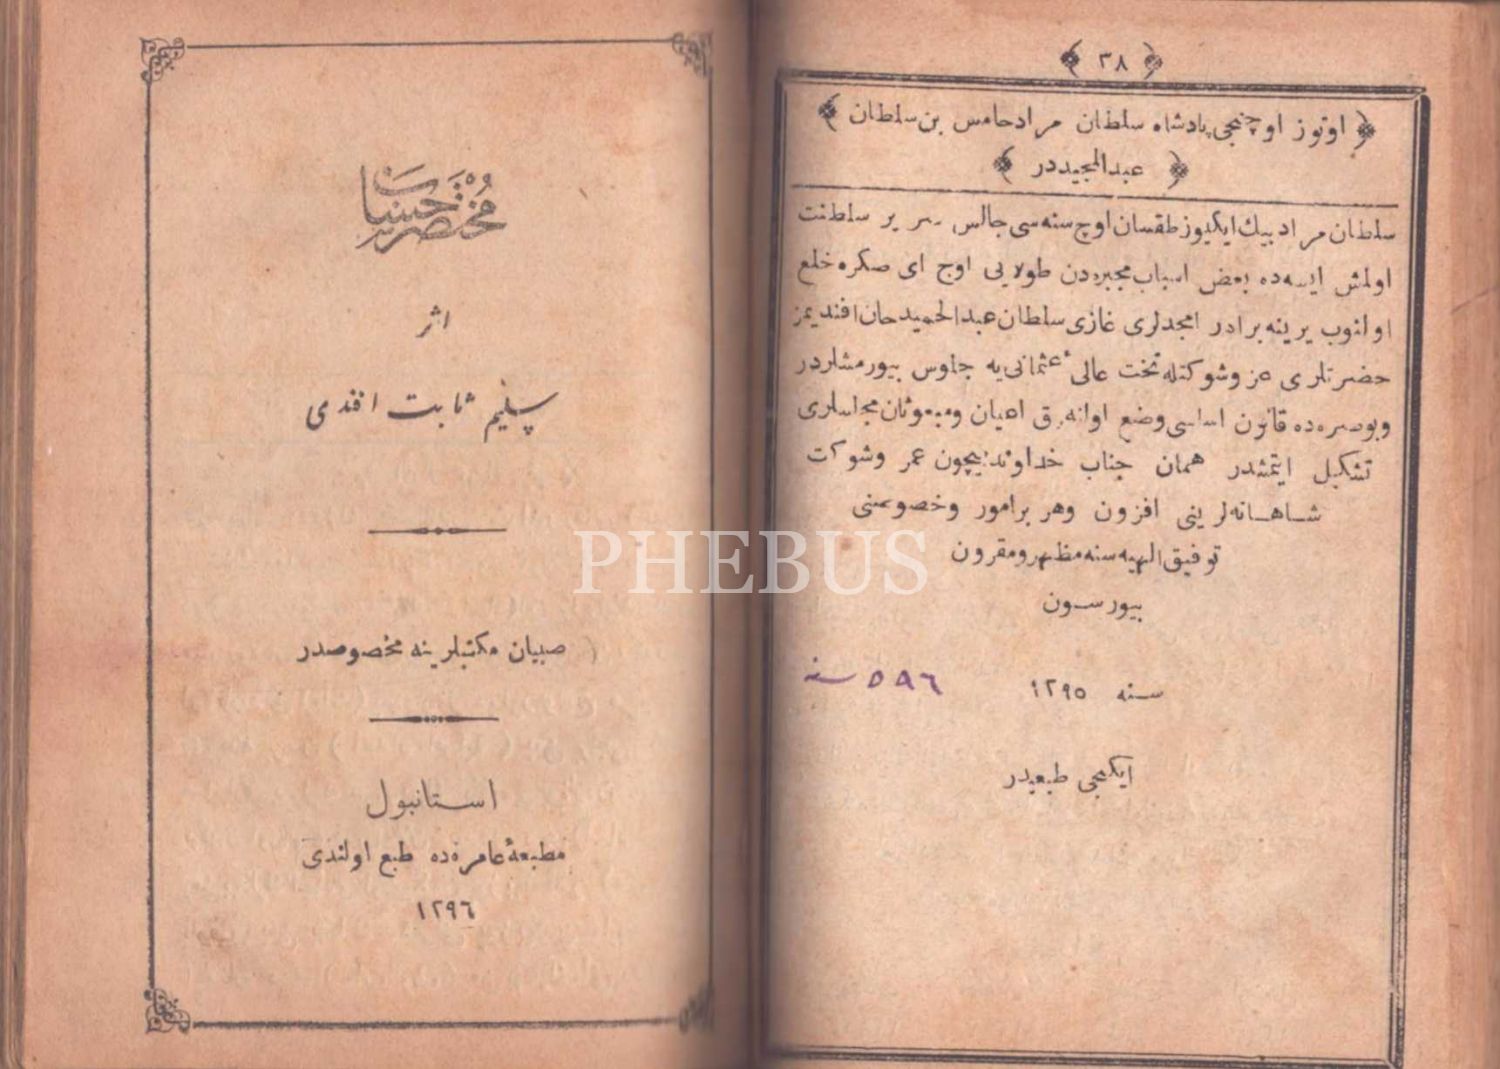 ﴿ ٣٨ ﴾
﴿ اوتوز اوچنجی پادشاه سلطان مراد خامس بن سلطان ﴾
﴿ عبدالمجیددر ﴾
سلطان مراد بیك ایكیوز طقسان اوچ سنه سی جالس سریر سلطنت
اولمش ایسه ده بعض اسباب مجبره دن طولایی اوچ ای صكره خلع
اولنوب یرینه برادر امجدلری غازی سلطان عبدالحمید خان افندیمز
حضرتلری عز و شوكتله تخت عالیٔ عثمانی یه جلوس بیورمشلردر
وبوصره ده قانون اساسی وضع اولنه رق اعیان ومبعوثان مجلسلری
تشكیل ایتمشدر همان جناب خداوند بیچون عمر وشوكت
شاهانه لرینی افزون وهر بر امور وخصوصنی
توفیق الهیه سنه مظهر ومقرون
بیورسون
سنه ١٢٩٥
٥٩٦ سنه
ایكنجی طبعیدر
مختصر حساب
اثر
سلیم ثابت افندی
صبیان مكتبلرینه مخصوصدر
استانبول
مطبعهٔ عامره ده طبع اولندی
١٢٩٦
PHEBUS